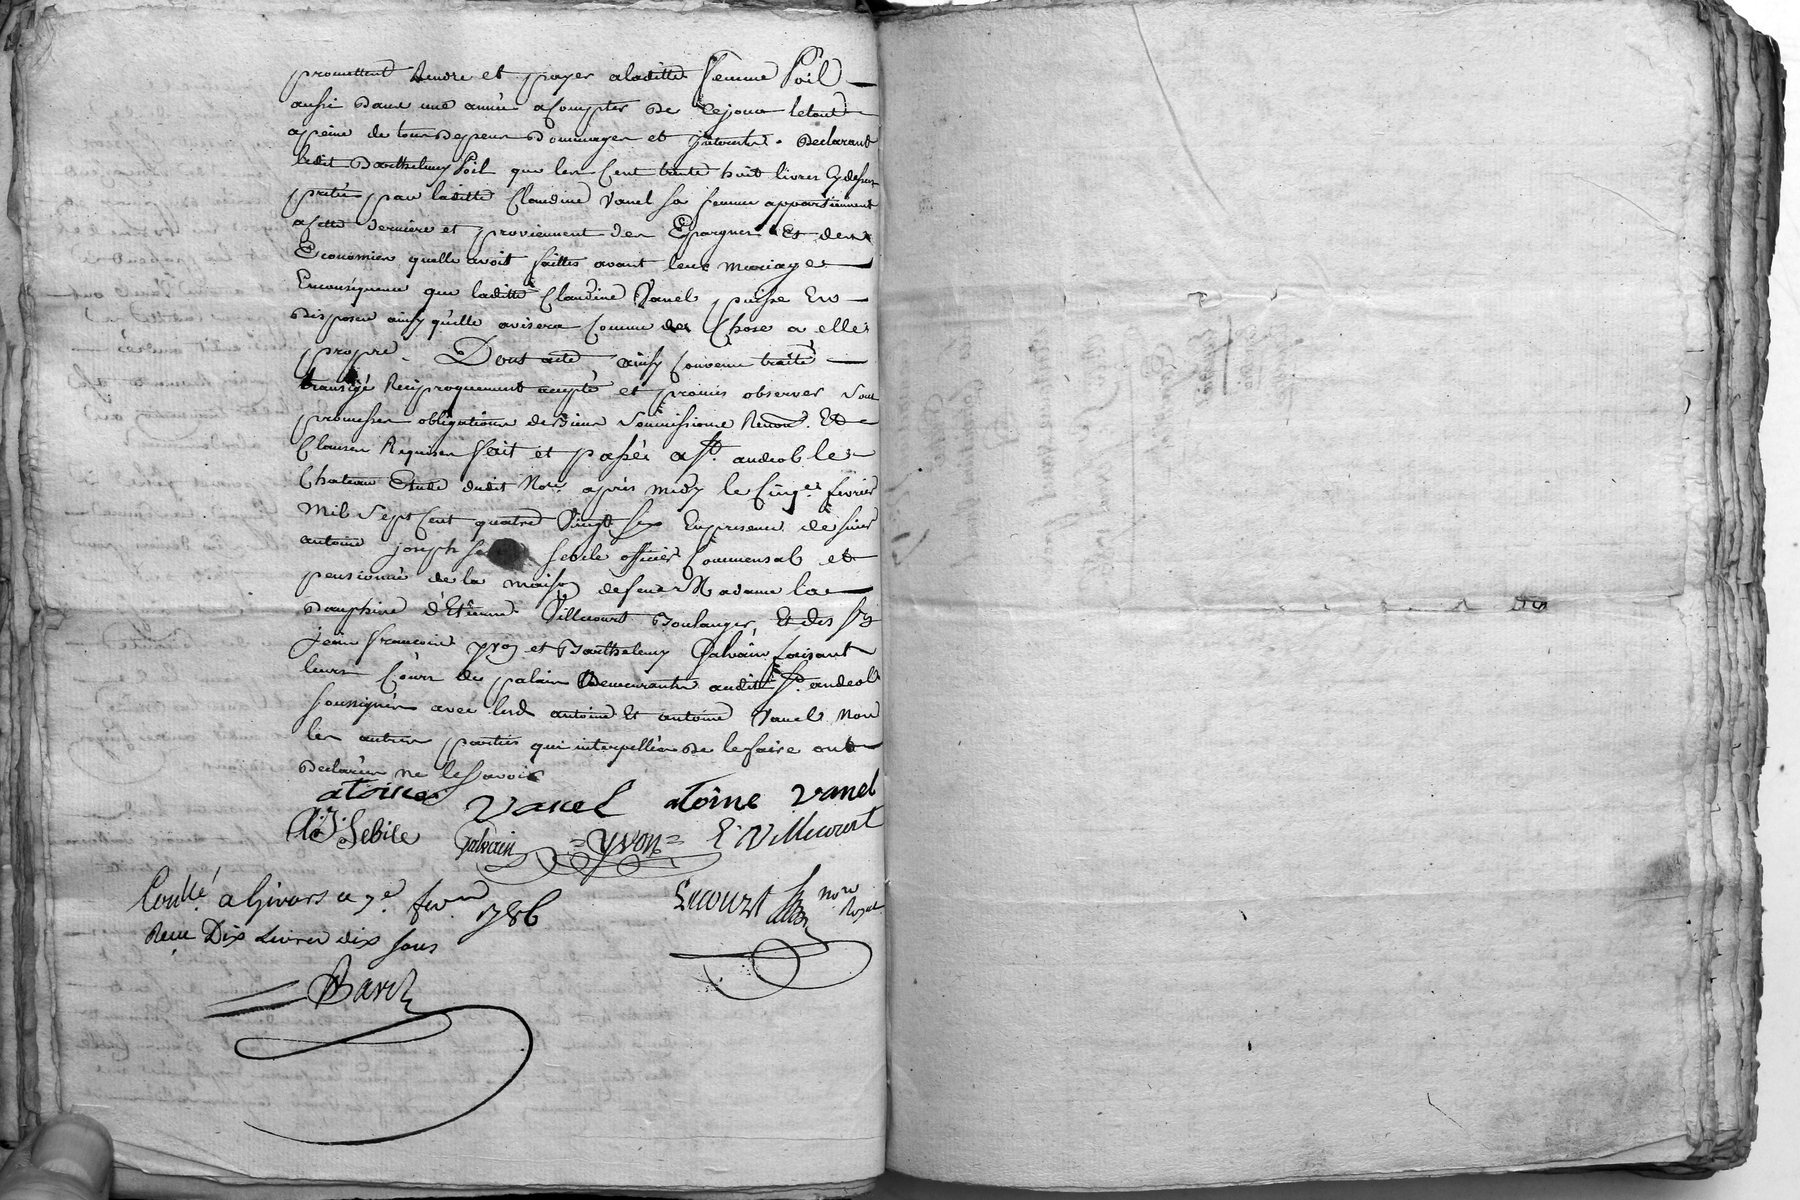 promettent Rendre et payer aladitte femme Poil
aussi Dans une année acompter De cejour letout
apeine de tous Depens Dommages et Interests. Declarant
ledit Barthelemy Poil que les Cent trente huit livres cy dessus
pretés par laditte Claudine Vanel sa femme appartiennent
acette derniere et proviennent des Epargnes Et des
Economies quelle avoit faittes avant leur mariage
Enconsequence que laditte Claudine Vanel puisse En
Disposer ainsy qu'elle avisera Comme de Chose a elle
propre. Dont acte ainsy Convenu traité
transigé Reciproquement accepté et promis observer sous
promesses obligations de Biens soumissions Renon. Et
Clauses Requises fait et passé a St. andeol le
Chateau Etude dudit Nore. après midy le Cinq.e fevrier
Mil Sept Cent quatre Vingt six Enpresence de sieur
antoine joseph Sebile officier Commensal et
pensionné de la maison defeue Madame la
Dauphine d'Etienne Villecourt Boulanger, Et des Srs
jean francois yvon et Barthelemy Galvain faisant
leurs Cours de palais Demeurants audit St. andeol
soussignés avec lesd antoine Et antoine Vanel Non
les autres parties qui interpellées De lefaire ont
Declarées ne lesavoir
atoine Vanel atoine vanel
A: J: Sebile Galvain =yvon= E: Villecourt
Conllé a Givors ce 7e. fevrier 1786
Reçu Dix Livres dix sous
Lecourt nore Royal